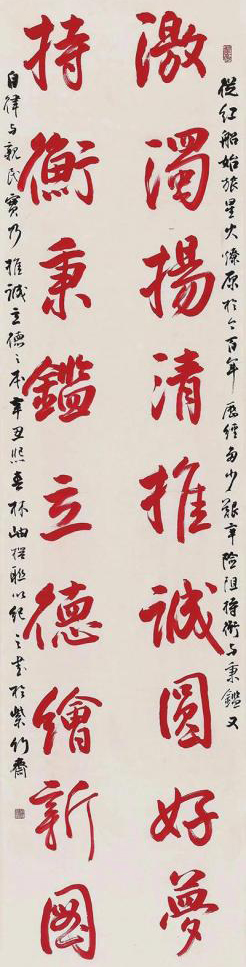 從红船始旅星火燎原於今百年歷經多少艱辛险阻持衡与秉鑑又
激濁揚清推誠圓好夢
持衡秉鑑立德繪新圖
自律与親民實乃推誠立德之本辛丑熙春林岫撰聯以纪之於紫竹齋